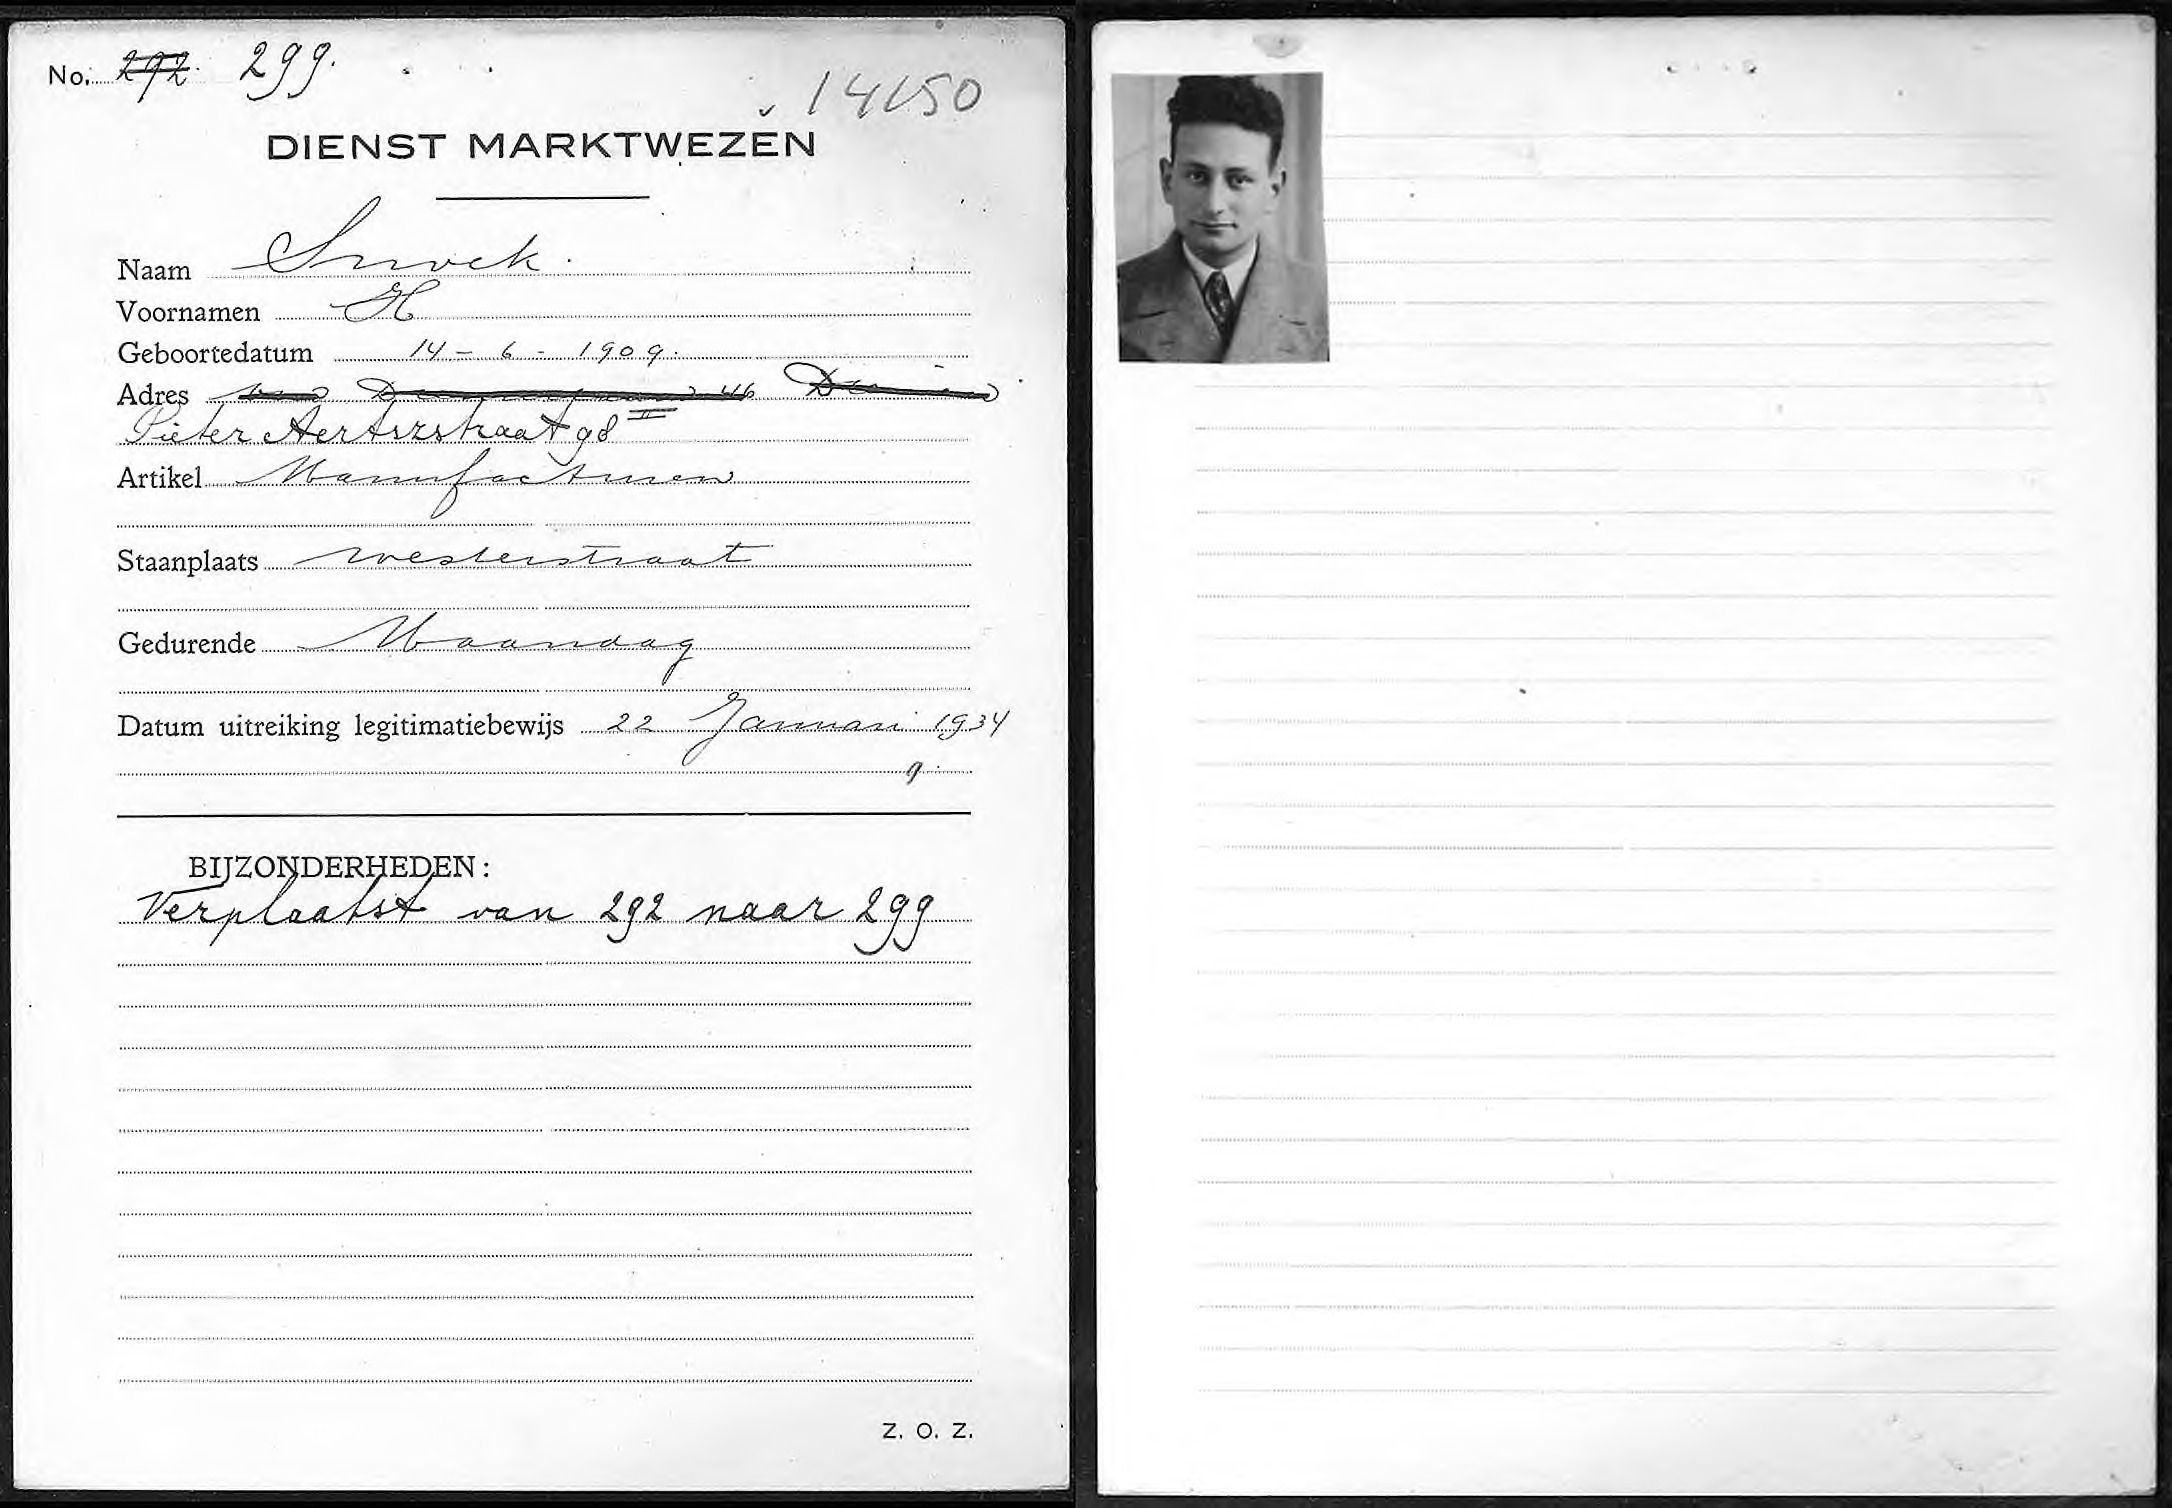 No. 292. 299.
14150
DIENST MARKTWEZEN
Naam Snoek.
Voornamen H
Geboortedatum 14 - 6 - 1909.
Adres 46
Pieter Aertszstraat 98 II
Artikel Manufacturen
Staanplaats Westerstraat
Gedurende Maandag
Datum uitreiking legitimatiebewijs 22 Januari 1934
9
BIJZONDERHEDEN:
Verplaatst van 292 naar 299
Z. O. Z.